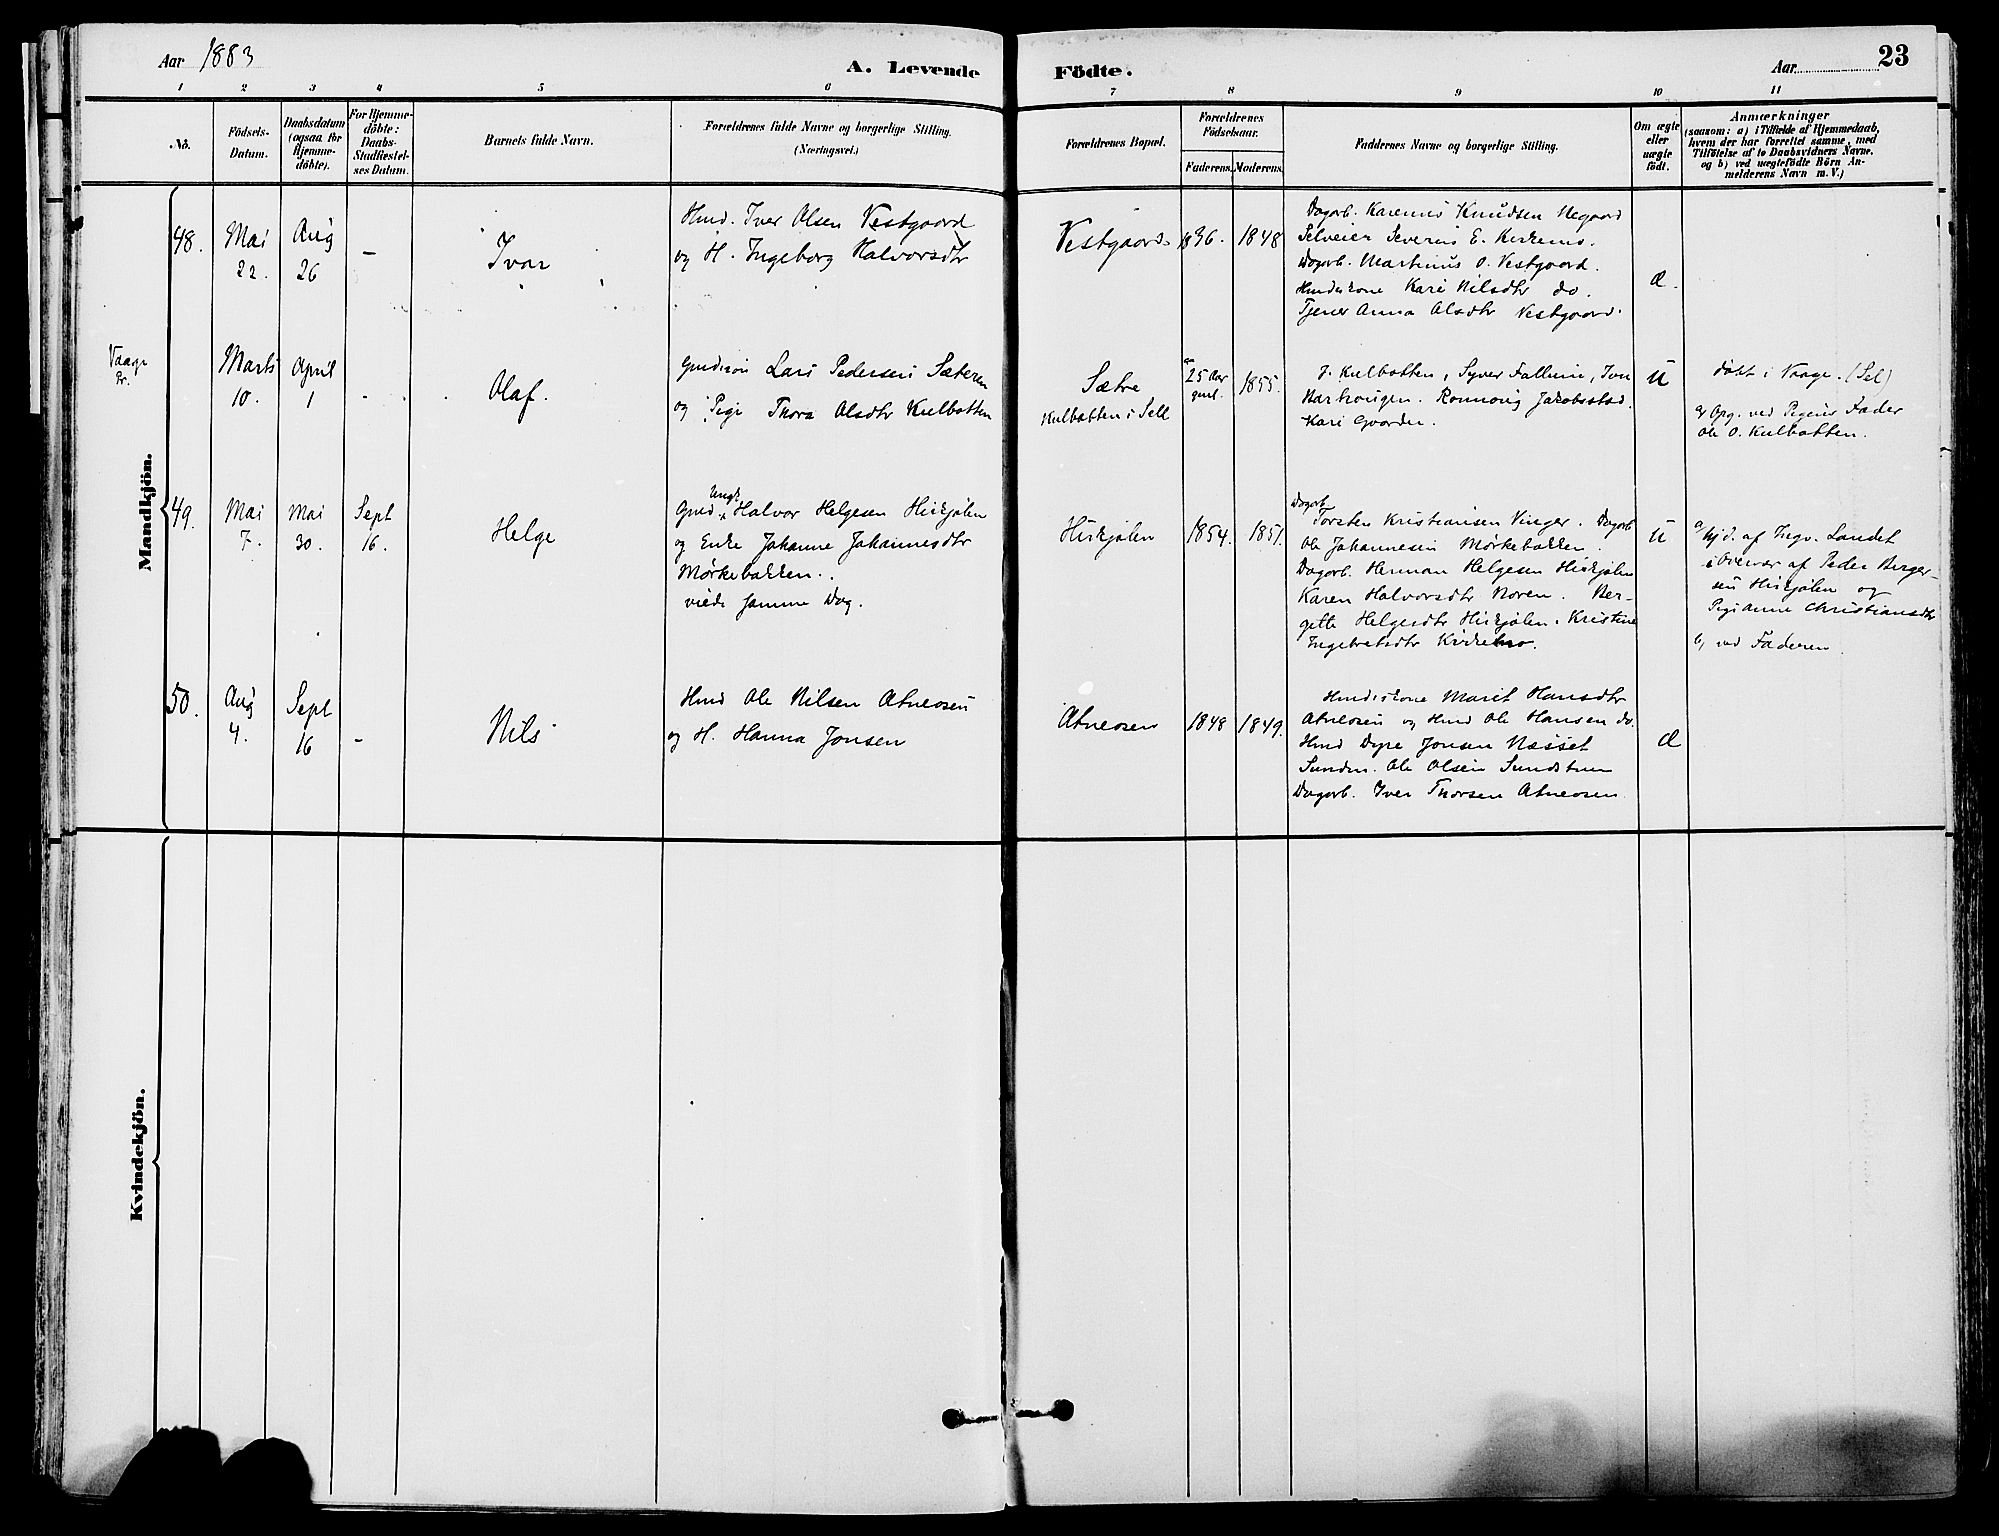 Aar 1883
A. Levende Födte.
Aar
23
1 2 3 4 5 6 7 8 9 10 11
No.
Födsels-
Datum.
Daabsdatum
(ogsaa for
Hjemme-
döbte).
For Hjemme-
döbte:
Daabs-
Stadfæstel-
ses Datum.
Barnets fulde Navn.
Forældrenes fulde Navne og borgerlige Stilling.
(Næringsvei.)
Forældrenes Bopæl.
Forældrenes
Födselsaar.
Faderens. Moderens.
Faddernes Navne og borgerlige Stilling.
Om ægte
eller
uægte
födt.
Anmærkninger
(saasom: a) i Tilfælde af Hjemmedaab,
hvem der har forrettet samme, med
Tilföielse af to Daabsvidners Navne.
og b) ved uægtefödte Börn An-
melderens Navn m. V.)
Mandkjön.
48.
Mai
22.
Aug
26
-
Ivar
Hmd. Iver Olsen Vestgaard
og H. Ingeborg Halvorsdtr
Vestgaard.
1836.
1848
Dagarb. Karenus Knudsen Negaard
Selveier Severin E. Kirkemo.
Dagarb. Martinus O. Vestgaard.
Huusekone Kari Nilsdtr do.
Tjener Anna Olsdtr Vestgaard.
Æ.
Vaage
Pr.
Marts
10.
April
1
-
Olaf.
Lars Pedersen Sæteren
og Pige Thora Olsdtr Kulbotten
Sætre
Kulbotten i Sell
25 Aar
gml.
1855.
J. Kulbotten, Syver
Ronnoug Jakobsstad.
Kari
U
döbt i Vaage. (Sel)
Opg. ved Pigens Fader
Ole O. Kulbotten.
49.
Mai
7.
Mai
30.
Sept
16.
Helge
Ungk.
Gmd. Halvor Helgesen Hirkjølen
og Enke Johanne Johannesdtr
Mørkebakken.
viede samme Dag.
Hirkjølen
1854.
1851.
Dagarb.
Torsten Kristiansen Vinger. Dagarb
Ole Johannesen Mørkebakken.
Dagarb. Herman Helgesen Hirkjølen
Karen Halvorsdtr Moren. Ber-
gette Helgesdtr Hirkjølen. Kristine
Ingebretsdtr Kirkemo.
U
a, hjd. af Ingv. Landet
i Overvær af Peder Berger-
sen Hirkjølen og
Pige Anne Christiansdtr
b, ved Faderen.
50.
Aug
4.
Sept
16
-
Nils
Hmd Ole Nilsen Atneosen
og H. Hanna Jonsen
Atneosen
1848
1849.
Huusekone Marit Hansdtr
Atneosen og Hmd Ole Hansen do.
Hmd Dyre Jonsen Næsset
Ole Olsen
Dagarb. Iver Thorsen Atneosen
Æ
Kvindekjön.